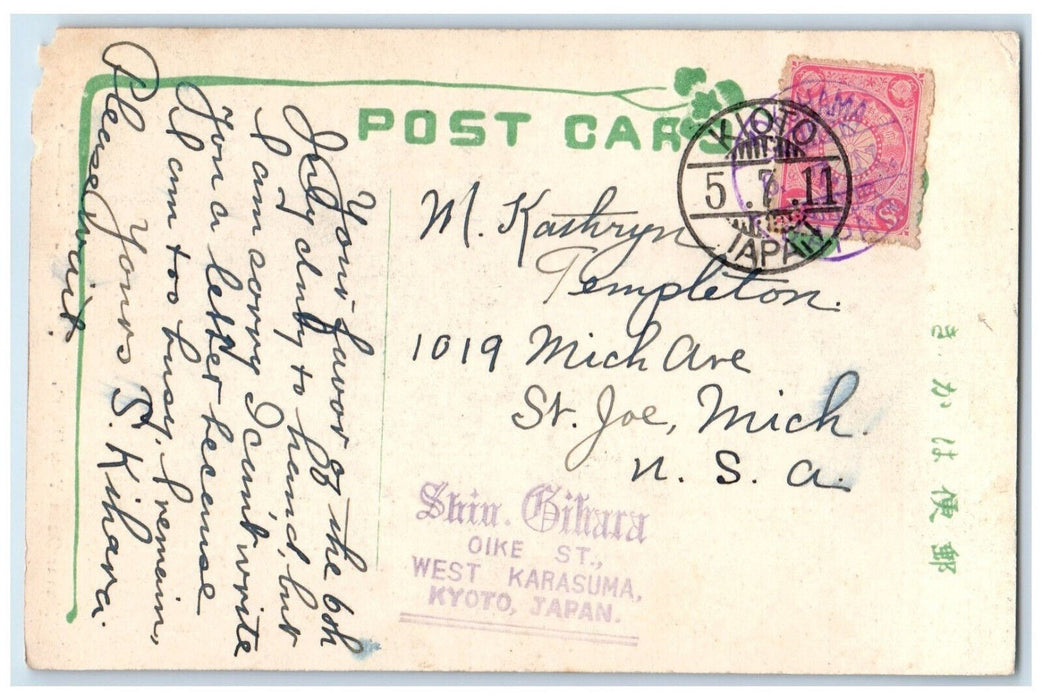 POST CARD
KIOTO
5.7.11
JAPAN
YAMA
M. Kathryn
Templeton.
1019 Mich Ave
St. Joe, Mich.
U. S. A.
Your favor of the 6th
July duly to hand, but
I am sorry I can't write
You a letter because
I am too busy. I remain,
Yours S. Kihara.
Please wait.
Shin. Gihara
OIKE ST.,
WEST KARASUMA,
KYOTO, JAPAN.
きかは便郵